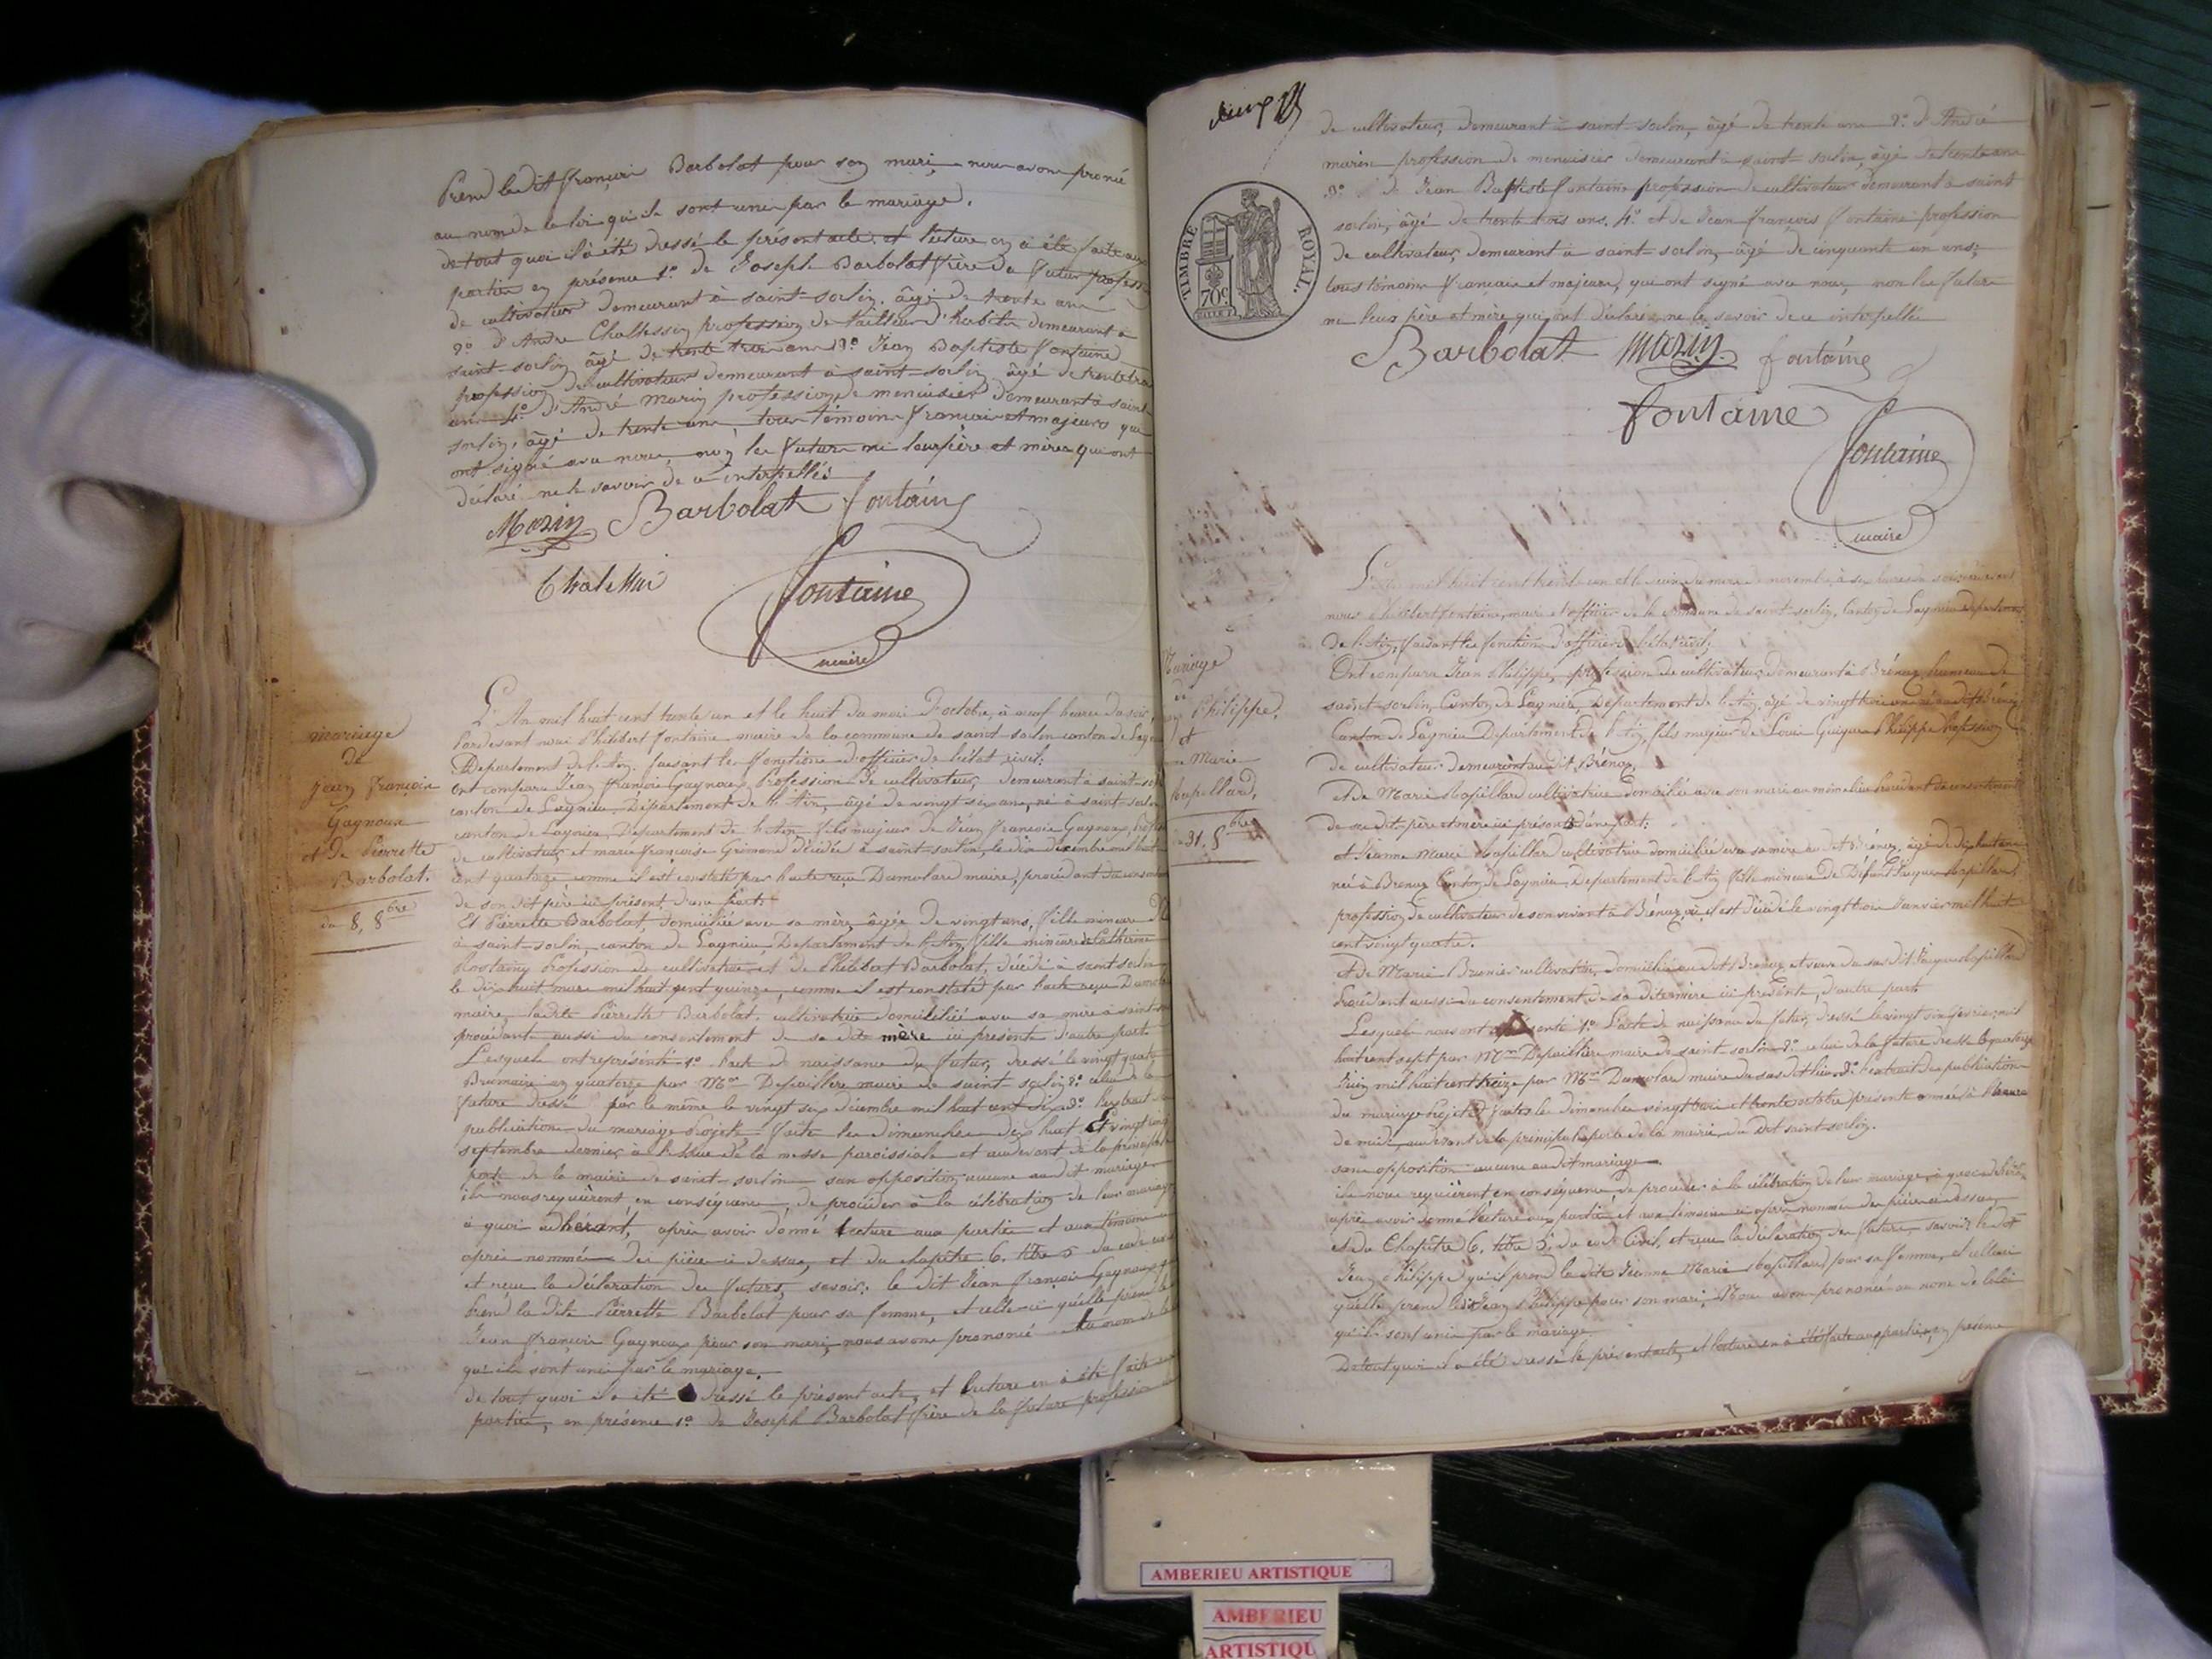 Prend ledit françois Barbolat pour son mari nous avons proné
au nom de la loi qu'ils sont unis par le mariage.
de tout quoi il a été dressé le présent acte et lecture en a été faite aux
parties en présence 1º de Joseph Barbolat frère du futur profess
de cultivateur demeurant à saint-sorlin, âgé de trente ans
2º d'André Chaltessin profession de tailleur d'habits demeurant à
saint-sorlin âgé de trente trois ans 3º Jean Baptiste fontaine
profession de cultivateur demeurant à saint-sorlin âgé de trente trois
ans 4º d'André Marin profession de menuisier demeurant à saint-
sorlin, âgé de trente ans, tous témoins français et majeurs qui
ont signé avec nous, non les futurs ni leurs père et mères qui ont
déclaré ne le savoir de ce interpellés
Marin Barbolat fontaine
fontaine
maire
mariage
de
jean françois
Gagnoux
et de Pierrette
Barbolat.
du 8, 8bre
L'An mil huit cent trente un et le huit du mois D'octobre, à neuf heures du soir,
Pardevant nous Philibert fontaine maire de la commune de saint-sorlin canton de Lagn
Département de l'Ain, faisant les fonctions d'officier de l'état civil;
Ont comparu Jean françois Gagnoux Profession de cultivateur, demeurant à saint-sor
canton de Lagnieu, Département de l'Ain, âgé de vingt six ans, né à saint-sorlin
canton de Lagnieu, Département de l'Ain, fils majeur de Jean françois Gagnoux, profes
de cultivateur et marie françoise Grimond décédée à saint-sorlin, le dix décembre mil huit
cent quatorze comme il est constaté par l'acte reçu Dumolard maire, procédant du consen
de son dit père ici présent, d'une part.
Et Pierrette Barbolat, domiciliée avec sa mère, âgée de vingt ans, fille mineure
à saint-sorlin, canton de Lagnieu Département de l'Ain, fille mineure de Catherine
Rostaing Profession de cultivatrice et de Philibert Barbolat, décédé à saint sorlin
le dix huit mars mil huit cent quinze, comme il est constaté par l'acte reçu Dumol
maire, ladite Pierrette Barbolat, cultivatrice domiciliée avec sa mère à saint-s
procédant aussi du consentement de sa dite mère ici présente d'autre part.
Lesquels ont représenté 1º l'acte de naissance du futur, dressé le vingt quatre
Brumaire an quatorze par Mr Depaillère maire de saint sorlin 2º celui de la
future dressé par le même le vingt six décembre mil huit cent dix 3º l'extrait
publications du mariage projeté faites les dimanches dix huit Et vingt cinq
septembre dernier à l'issue de la messe paroissiale et au devant de la principale
porte de la mairie de saint-sorlin sans opposition aucune au dit mariage.
ils nous requièrent en conséquence de procéder à la célébration de leur mariage
à quoi adhérant, après avoir donné lecture aux parties et aux témoins
après nommés des pièces ci dessus, et du chapitre 6. titre 5 du code civ
et reçu la déclaration des futurs, savoir: le dit Jean françois Gagnoux qu
prend la dite Pierrette Barbolat pour sa femme, et celle-ci qu'elle prend le
Jean françois Gagnoux pour son mari, nous avons prononcé au nom de la
qu'ils sont unis par le mariage.
de tout quoi il a été dressé le présent acte, et lecture en a été faite aux
parties, en présence 1º de Joseph Barbolat frère de la future profession
TIMBRE ROYAL.
70c
de cultivateur, demeurant à saint-sorlin, âgé de trente ans 2º d'André
marin profession de menuisier demeurant à saint-sorlin, âgé de trente ans
3º de Jean Baptiste fontaine profession de cultivateur demeurant à saint
sorlin, âgé de trente trois ans. 4º et de Jean françois fontaine profession
de cultivateur, demeurant à saint-sorlin, âgé de cinquante un ans;
tous témoins français et majeurs, qui ont signé avec nous, non les futurs
ni leurs père et mère qui ont déclaré ne le savoir de ce interpellés
Barbolat Marin fontaine
fontaine
fontaine
maire
Mariage
de
Philippe,
et
Marie
Capellard,
31. 8bre
L'an mil huit cent trente un et le du mois de novembre, à six heures du soir, pardevant
nous Philibert fontaine, maire et officier de la commune de saint-sorlin, Canton de Lagnieu département
de l'Ain, faisant les fonctions d'officier de l'état civil;
Ont comparu Jean Philippe, profession de cultivateur, demeurant à Brénaz, hameau de
saint-sorlin, Canton de Lagnieu, Département de l'Ain, âgé de vingt trois ans né au dit Brénaz
Canton de Lagnieu Département de l'Ain, fils majeur de Louis Philippe Profession
de cultivateur demeurant au dit Brénaz,
Et de Marie Capellard cultivatrice domiciliée avec son mari au même lieu procédant du consentement
de ses dit père et mère ici présents d'une part;
et Jeanne Marie Capellard cultivatrice domiciliée avec sa mère au dit Brénaz, âgée de dix huit ans
née à Brenaz Canton de Lagnieu, Département de l'Ain fille mineure De Défunt Jacques Capellard,
profession de cultivateur de son vivant à Brénaz, où il est décédé le vingt trois Janvier mil huit
cent vingt quatre.
Et de Marie Brunier cultivatrice, domiciliée au dit Brenaz et veuve du susdit Jacques Capellard
Procédant aussi du consentement de sa dite mère ici présente, d'autre part.
Lesquels nous ont représenté 1º L'acte de naissance du futur, dressé le vingt février mil
huit cent sept par Mr Depaillère maire de saint sorlin 2º celui de la future dressé le quatorze
Juin mil huit cent treize par Mr Dumolard maire du susdit lieu 3º l'extrait des publications
du mariage Projeté faites les dimanches vingt trois et trente octobre présente année à l'heure
de midi, au devant de la principale porte de la mairie, du Dit saint sorlin.
sans opposition aucune au dit mariage.
ils nous requièrent en conséquence de procéder à la célébration de leur mariage, à quoi adhérant,
après avoir donné lecture aux parties et aux témoins ci après nommés des pièces ci dessus,
et du Chapitre 6. titre 5. du code Civil, et reçu la déclaration des futurs, savoir, le dit
Jean Philippe qu'il prend la dite Jeanne Marie Capellard pour sa femme, et celle ci
qu'elle prend le dit Jean Philippe pour son mari, Nous avons prononcé au nom de la loi
qu'ils sont unis par le mariage.
De tout quoi il a été dressé le présent acte, et lecture en a été faite aux parties, en présence
AMBERIEU ARTISTIQUE
AMBERIEU
ARTISTIQU